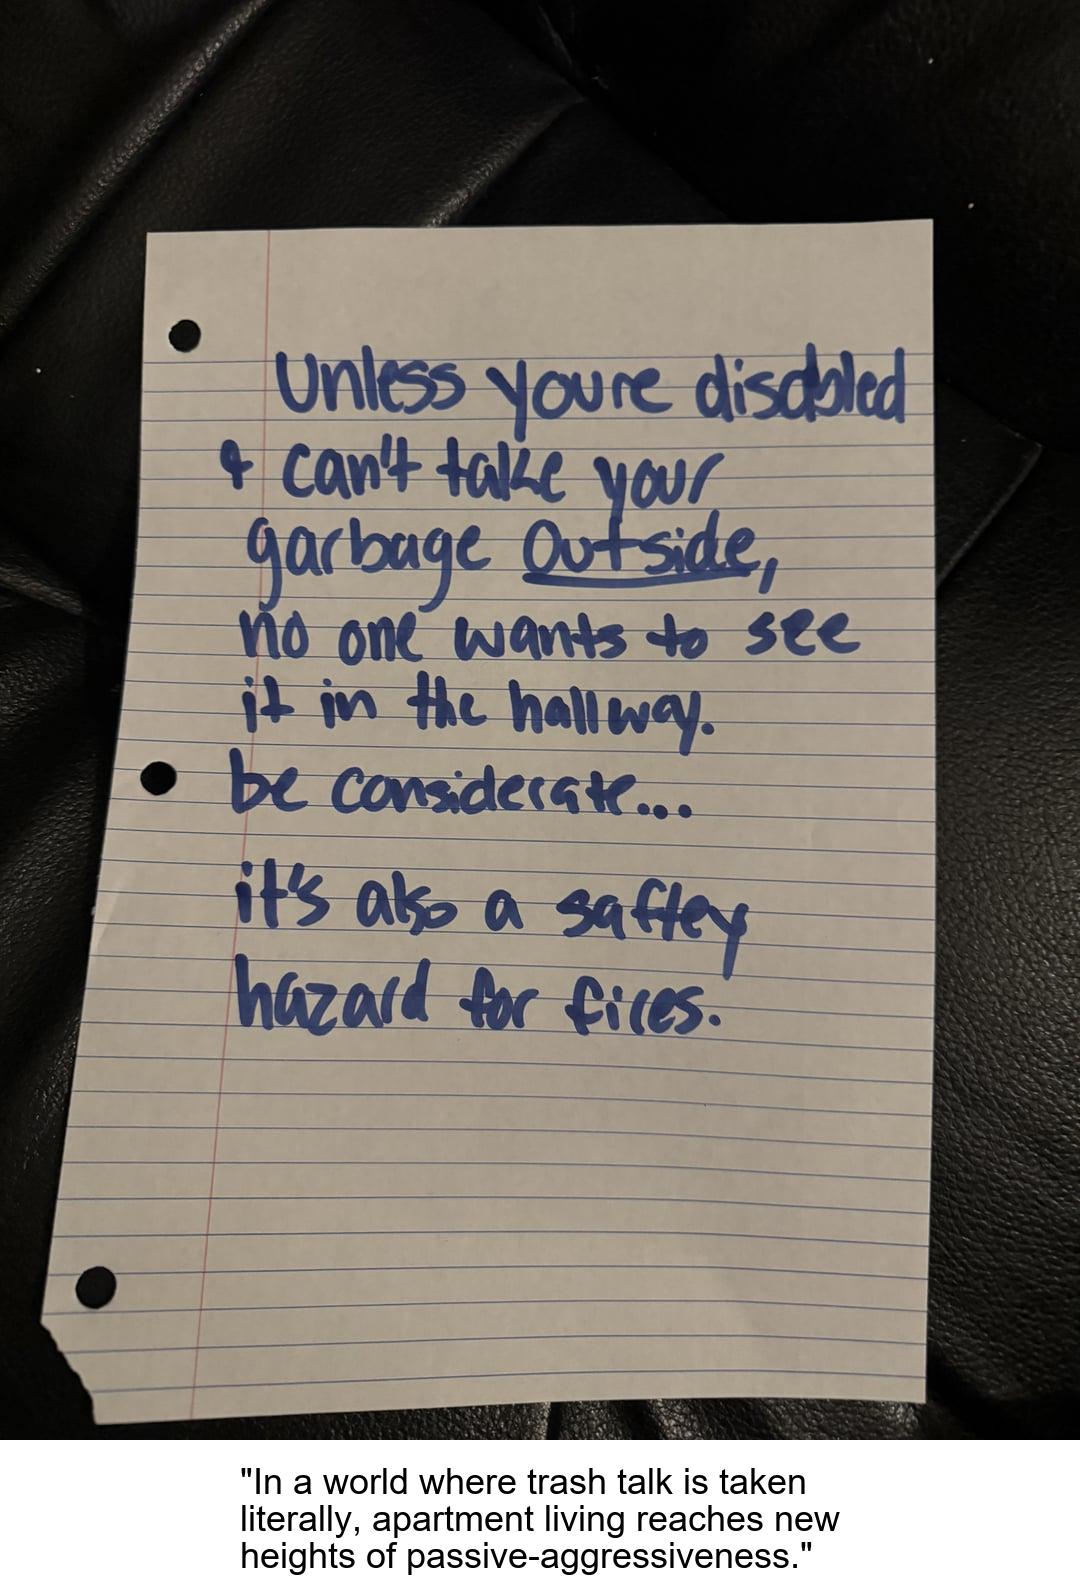 Unless youre disabled
& can't take your
garbage outside,
no one wants to see
it in the hallway.
be considerate...
it's also a saftey
hazard for fires.
"In a world where trash talk is taken
literally, apartment living reaches new
heights of passive-aggressiveness."